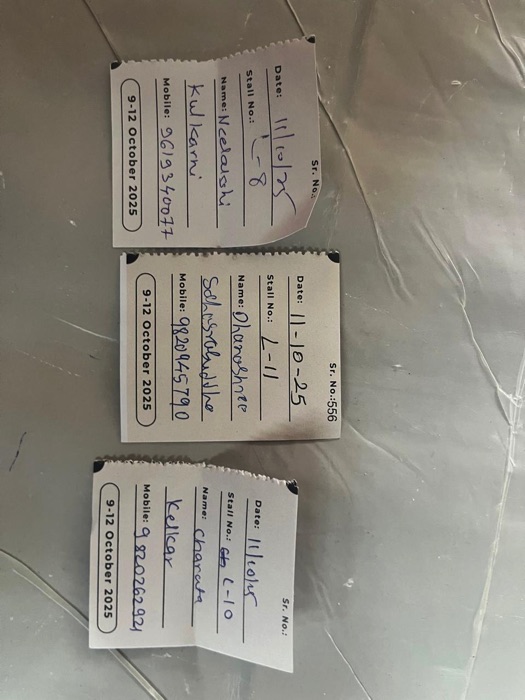 Sr. No.:
Date: 11/10/25
Stall No.: L-8
Name: Neelakshi
Kulkarni
Mobile: 9619340077
9-12 October 2025
Sr. No.:556
Date: 11-10-25
Stall No.: L-11
Name: Dhanashree
Sahasrabuddhe
Mobile: 9820945790
9-12 October 2025
Sr. No.:
Date: 11/10/25
Stall No.: L-10
Name: Charuta
Kelkar
Mobile: 9820262921
9-12 October 2025